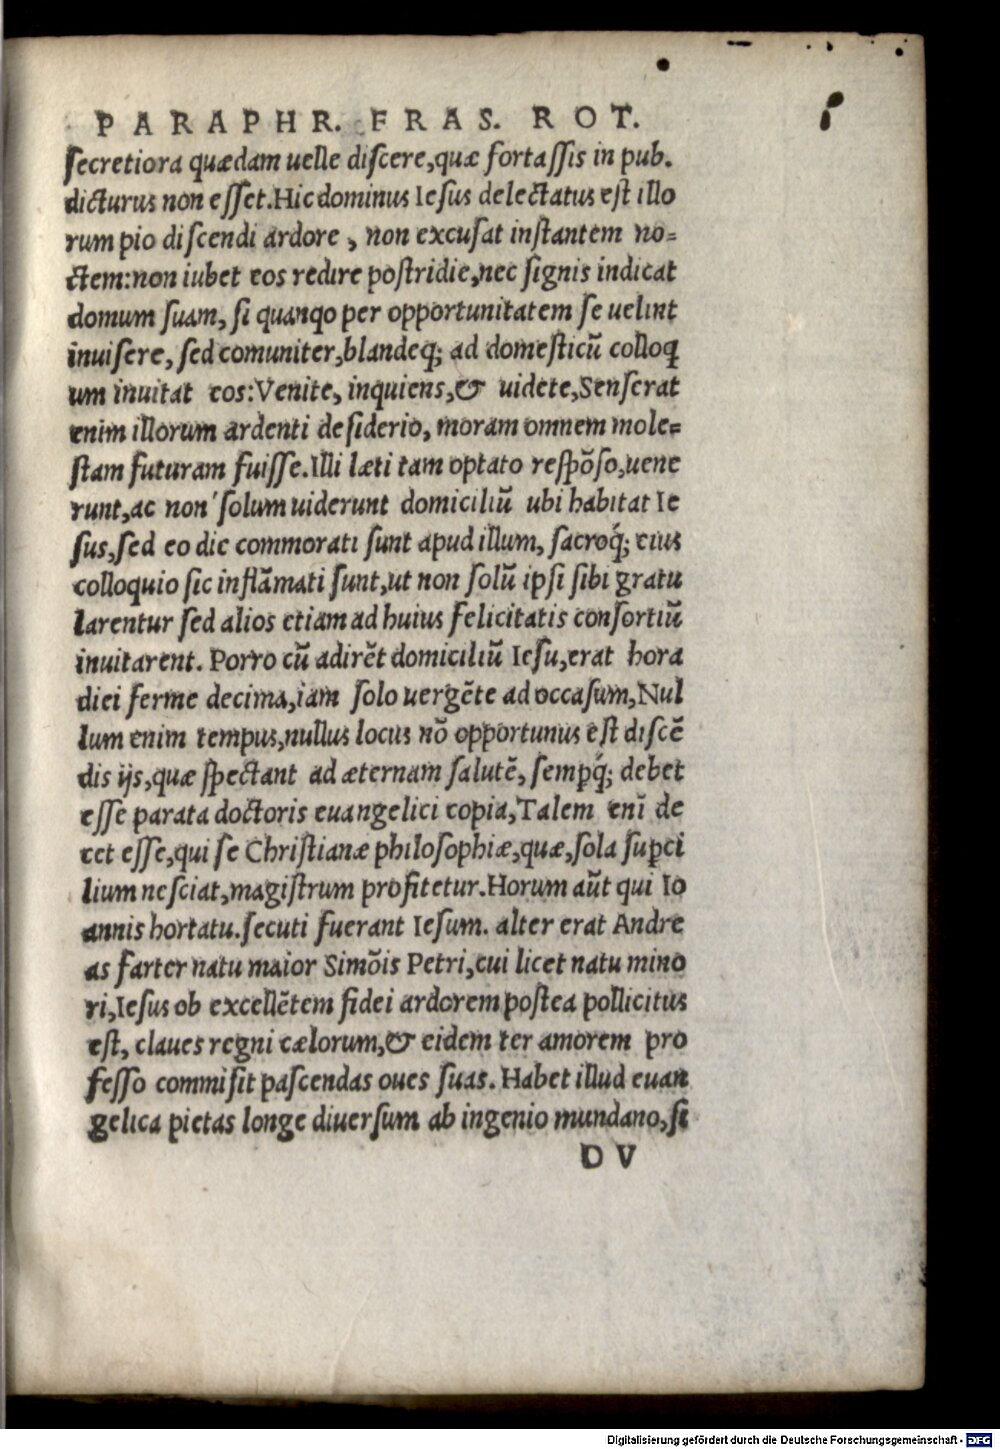 PARAPHR. FRAS. ROT.
secretiora quædam uelle discere,quæ fortassis in pub.
dicturus non esset.Hic dominus Iesus delectatus est illo
rum pio discendi ardore , non excusat instantem no=
ctem:non iubet eos redire postridie,nec signis indicat
domum suam, si quanqo per opportunitatem se uelint
inuisere, sed comuniter,blandeq; ad domesticū colloq
um inuitat eos:Venite, inquiens,& uidete,Senserat
enim illorum ardenti desiderio, moram omnem mole=
stam futuram fuisse.Illi læti tam optato respōso,uene
runt,ac non solum uiderunt domiciliū ubi habitat Ie
sus,sed eo die commorati sunt apud illum, sacroq́; eius
colloquio sic inflāmati sunt,ut non solū ipsi sibi gratu
larentur sed alios etiam ad huius felicitatis consortiū
inuitarent. Porro cū adirēt domiciliū Iesu,erat hora
diei ferme decima,iam solo uergēte ad occasum,Nul
lum enim tempus,nullus locus nō opportunus est discē
dis ijs,quæ spectant ad æternam salutē, sempq́; debet
esse parata doctoris euangelici copia,Talem enī de
cet esse,qui se Christianæ philosophiæ,quæ,sola supci
lium nesciat,magistrum profitetur.Horum aūt qui Io
annis hortatu.secuti fuerant Iesum. alter erat Andre
as farter natu maior Simōis Petri,cui licet natu mino
ri,Iesus ob excellētem fidei ardorem postea pollicitus
est, claues regni cælorum,& eidem ter amorem pro
fesso commisit pascendas oues suas. Habet illud euan
gelica pietas longe diuersum ab ingenio mundano,si
D V
Digitalisierung gefördert durch die Deutsche Forschungsgemeinschaft - DFG